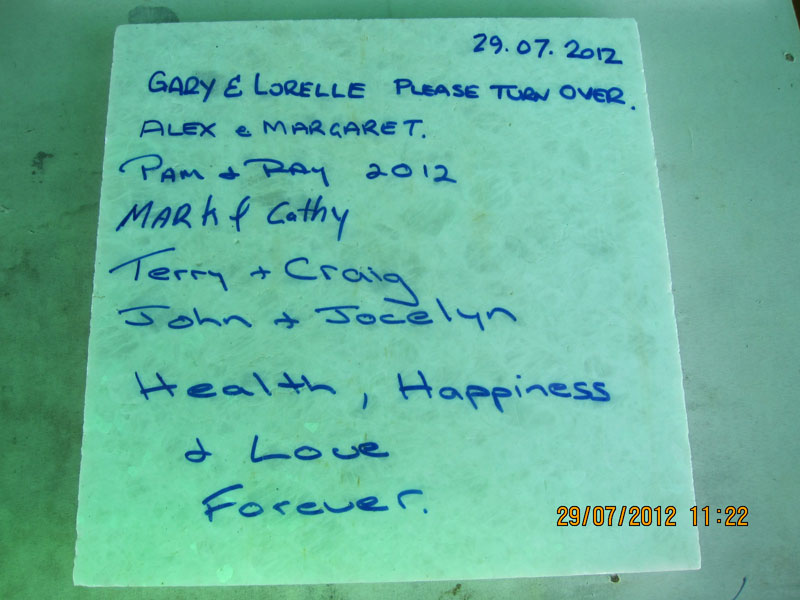 29.07.2012
GARY & LORELLE PLEASE TURN OVER.
ALEX & MARGARET.
PAM & RAY 2012
MARK & Cathy
Terry + Craig
John & Jocelyn
Health, Happiness
& Love
Forever.
29/07/2012 11:22